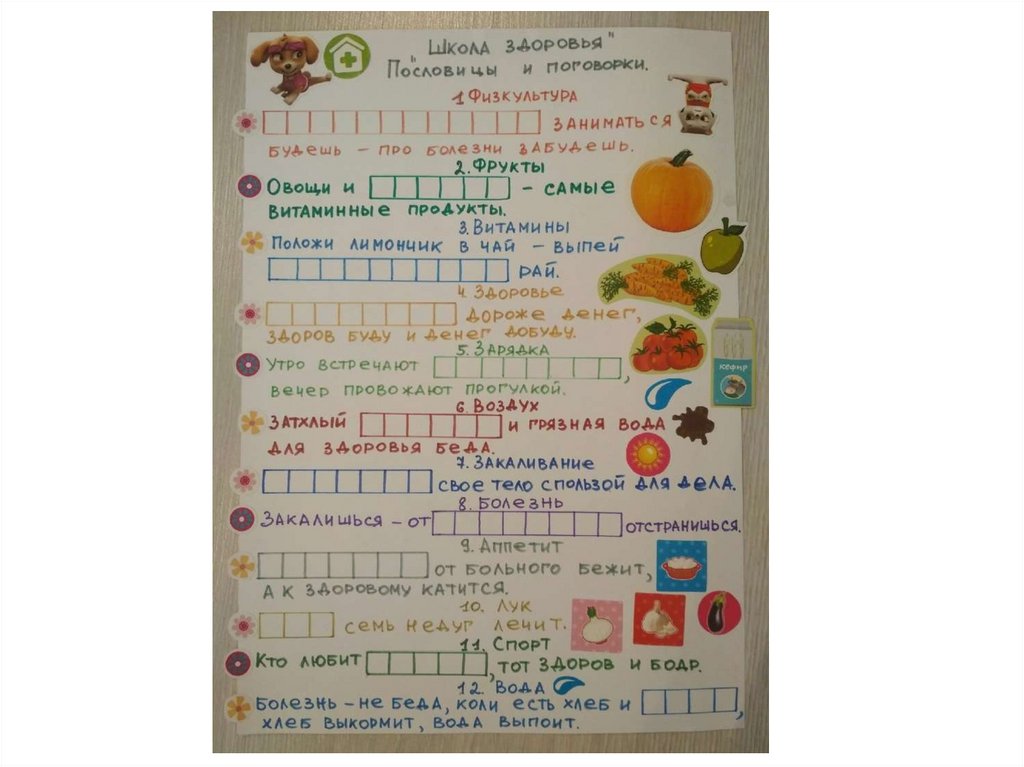 "Школа здоровья"
Пословицы и поговорки.
1 Физкультура
заниматься
будешь – про болезни забудешь.
2. Фрукты
Овощи и – самые
витаминные продукты.
3. Витамины
Положи лимончик в чай – выпей
рай.
4. Здоровье
дороже денег,
здоров буду и денег добуду.
5. Зарядка
Утро встречают ,
вечер провожают прогулкой.
6. Воздух
Затхлый и грязная вода
для здоровья беда.
7. Закаливание
свое тело с пользой для дела.
8. Болезнь
Закалишься – от отстранишься.
9. Аппетит
от больного бежит,
а к здоровому катится.
10. Лук
семь недуг лечит.
11. Спорт
Кто любит , тот здоров и бодр.
12. Вода
Болезнь – не беда, коли есть хлеб и ,
хлеб выкормит, вода выпоит.
кефир